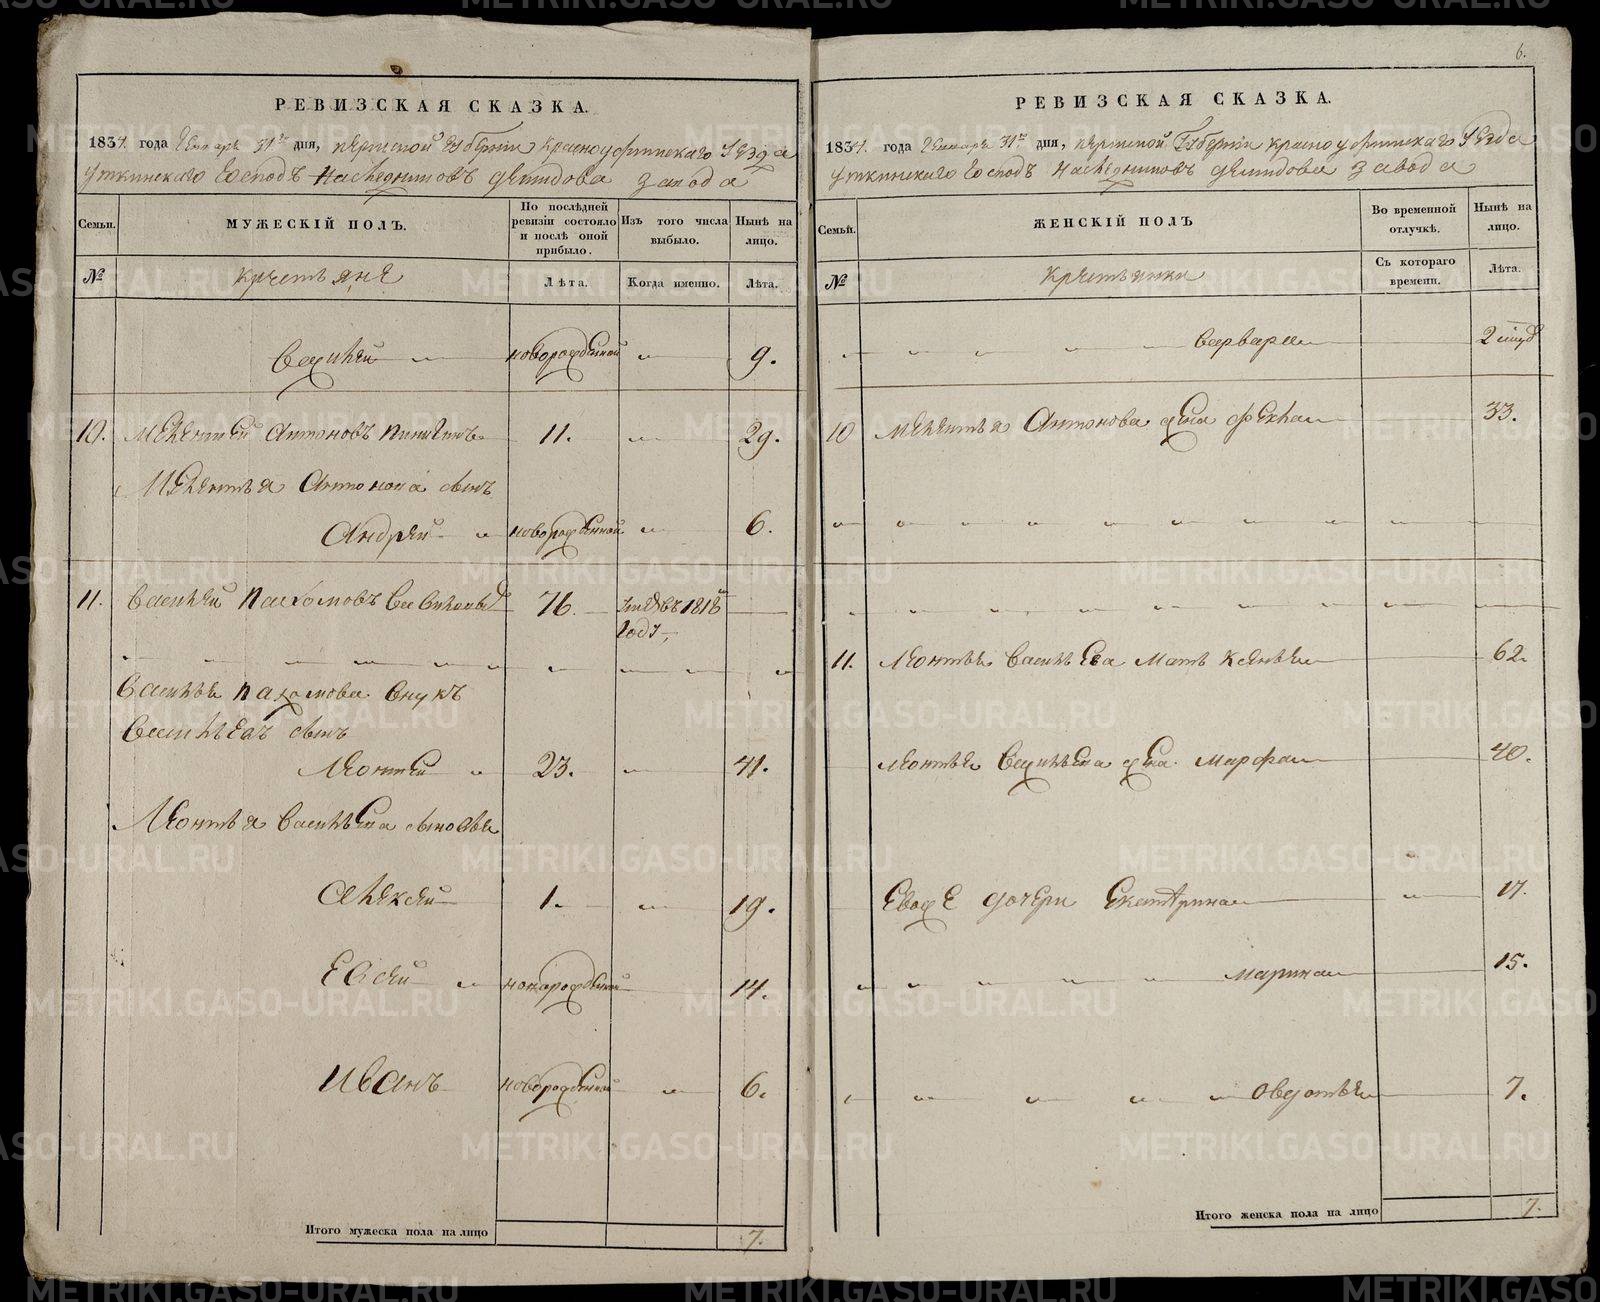 6.
РЕВИЗСКАЯ СКАЗКА.
1834. года Генваря 31го дня, Пермской Губернiи Красноуфимскаго Уезда
Уткинскаго Господъ Наследниковъ Демидова завода
Семьи.
МУЖЕСКIЙ ПОЛЪ.
По последней ревизiи состояло и после оной прибыло.
Изъ того числа выбыло.
Ныне на лицо.
№
Крестьяне
Лѣта.
Когда именно.
Лѣта.
Василей новорожденной 9.
10. Мелентей Антоновъ 11. 29.
Мелентья Антонова сынъ
Андрей новорожденной 6.
11. Василей Пахомовъ 76. 1818 году
Василья Пахомова внукъ
Васильевъ сынъ
Леонтей 23. 41.
Леонтья Васильева сыновья
Алексей 1. 19.
Евсей новорожденной 14.
Иванъ новорожденной 6.
Итого мужеска пола на лицо 7.
РЕВИЗСКАЯ СКАЗКА.
1834. года Генваря 31го дня, Пермской Губернiи Красноуфимскаго Уезда
Уткинскаго Господъ Наследниковъ Демидова завода
Семьи.
ЖЕНСКIЙ ПОЛЪ
Во временной отлучкѣ.
Ныне на лицо.
№
Крестьянки
Съ котораго времени.
Лѣта.
Варвара 2
10 Мелентья Антонова жена Фекла 33.
11. Леонтья Васильева мать Ксенья 62.
Леонтья Васильева жена Марфа 40.
Евож Е дочери Екатерина 17.
Марина 15.
Овдотья 7.
Итого женска пола на лицо 7.
METRIKI.GASO-URAL.RU